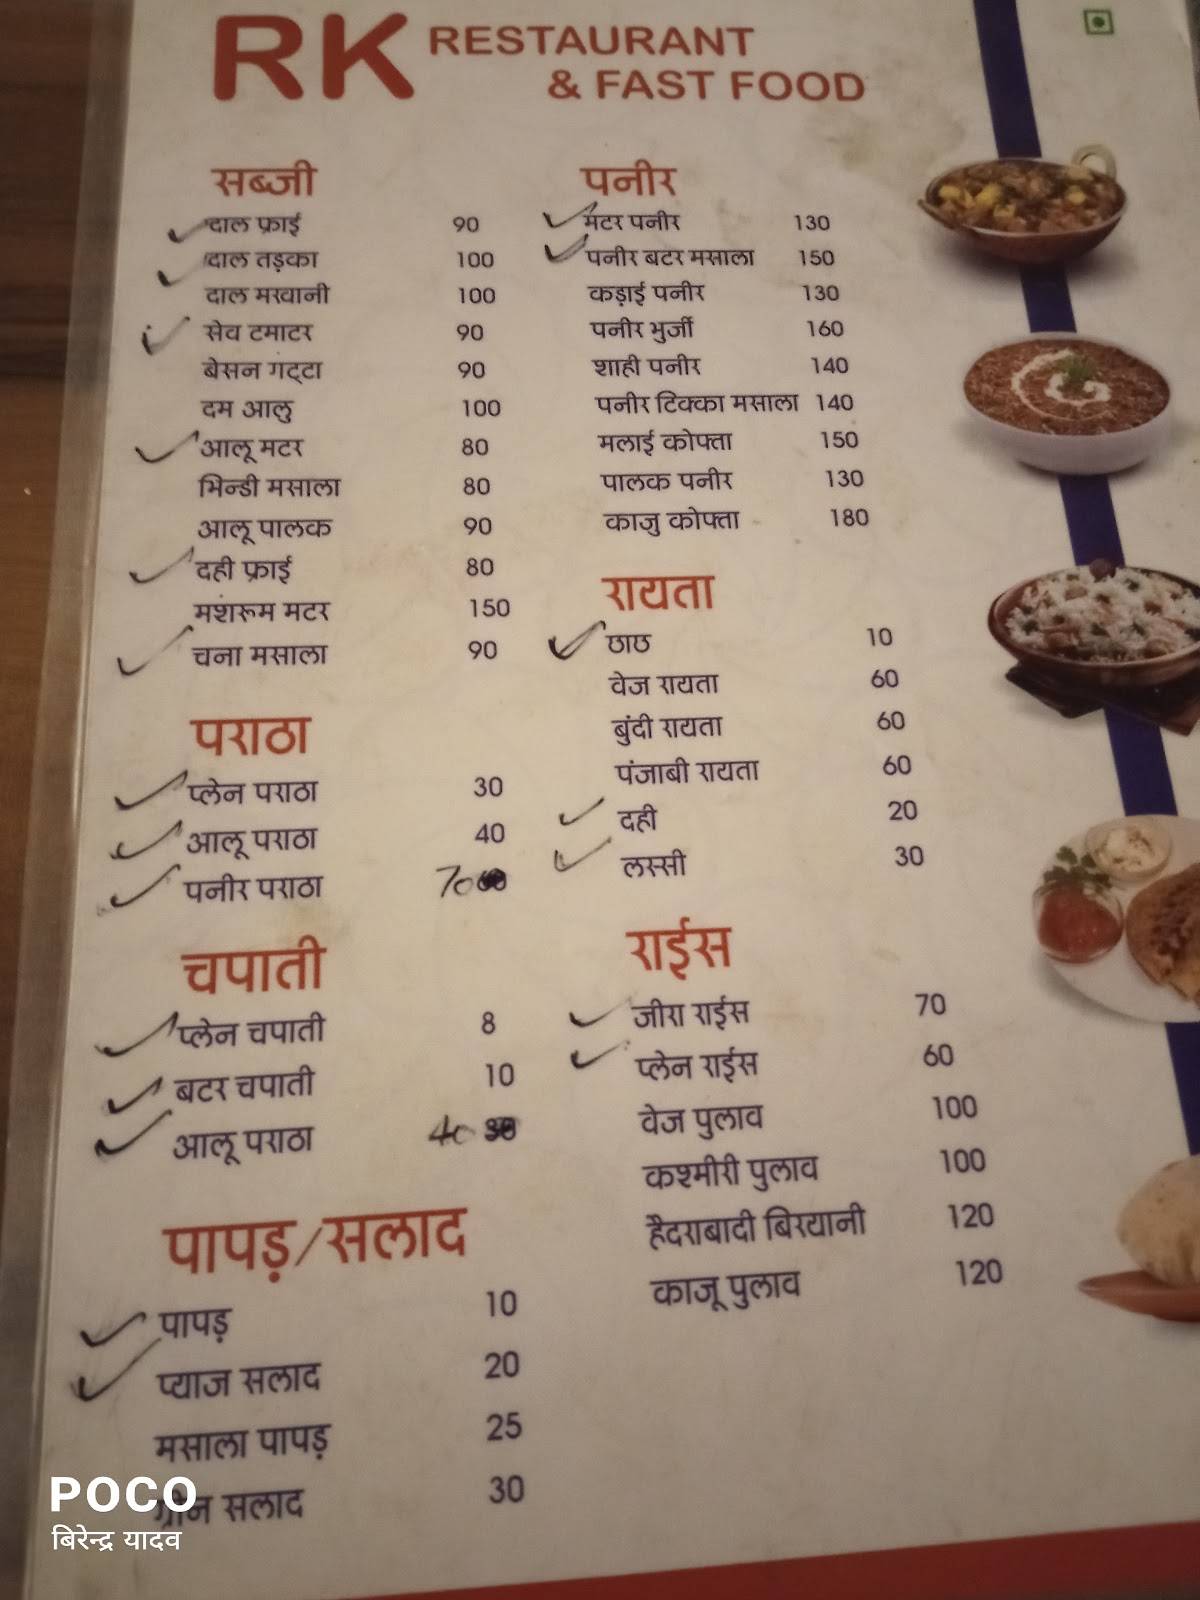 RK RESTAURANT
& FAST FOOD
सब्जी
दाल फ्राई 90
दाल तड़का 100
दाल मखानी 100
सेव टमाटर 90
बेसन गट्टा 90
दम आलु 100
आलू मटर 80
भिन्डी मसाला 80
आलू पालक 90
दही फ्राई 80
मशरूम मटर 150
चना मसाला 90
पराठा
प्लेन पराठा 30
आलू पराठा 40
पनीर पराठा 70
चपाती
प्लेन चपाती 8
बटर चपाती 10
आलू पराठा 40
पापड़/सलाद
पापड़ 10
प्याज सलाद 20
मसाला पापड़ 25
ग्रीन सलाद 30
पनीर
मटर पनीर 130
पनीर बटर मसाला 150
कड़ाई पनीर 130
पनीर भुर्जी 160
शाही पनीर 140
पनीर टिक्का मसाला 140
मलाई कोफ्ता 150
पालक पनीर 130
काजु कोफ्ता 180
रायता
छाछ 10
वेज रायता 60
बुंदी रायता 60
पंजाबी रायता 60
दही 20
लस्सी 30
राईस
जीरा राईस 70
प्लेन राईस 60
वेज पुलाव 100
कश्मीरी पुलाव 100
हैदराबादी बिरयानी 120
काजू पुलाव 120
POCO
बिरेन्द्र यादव